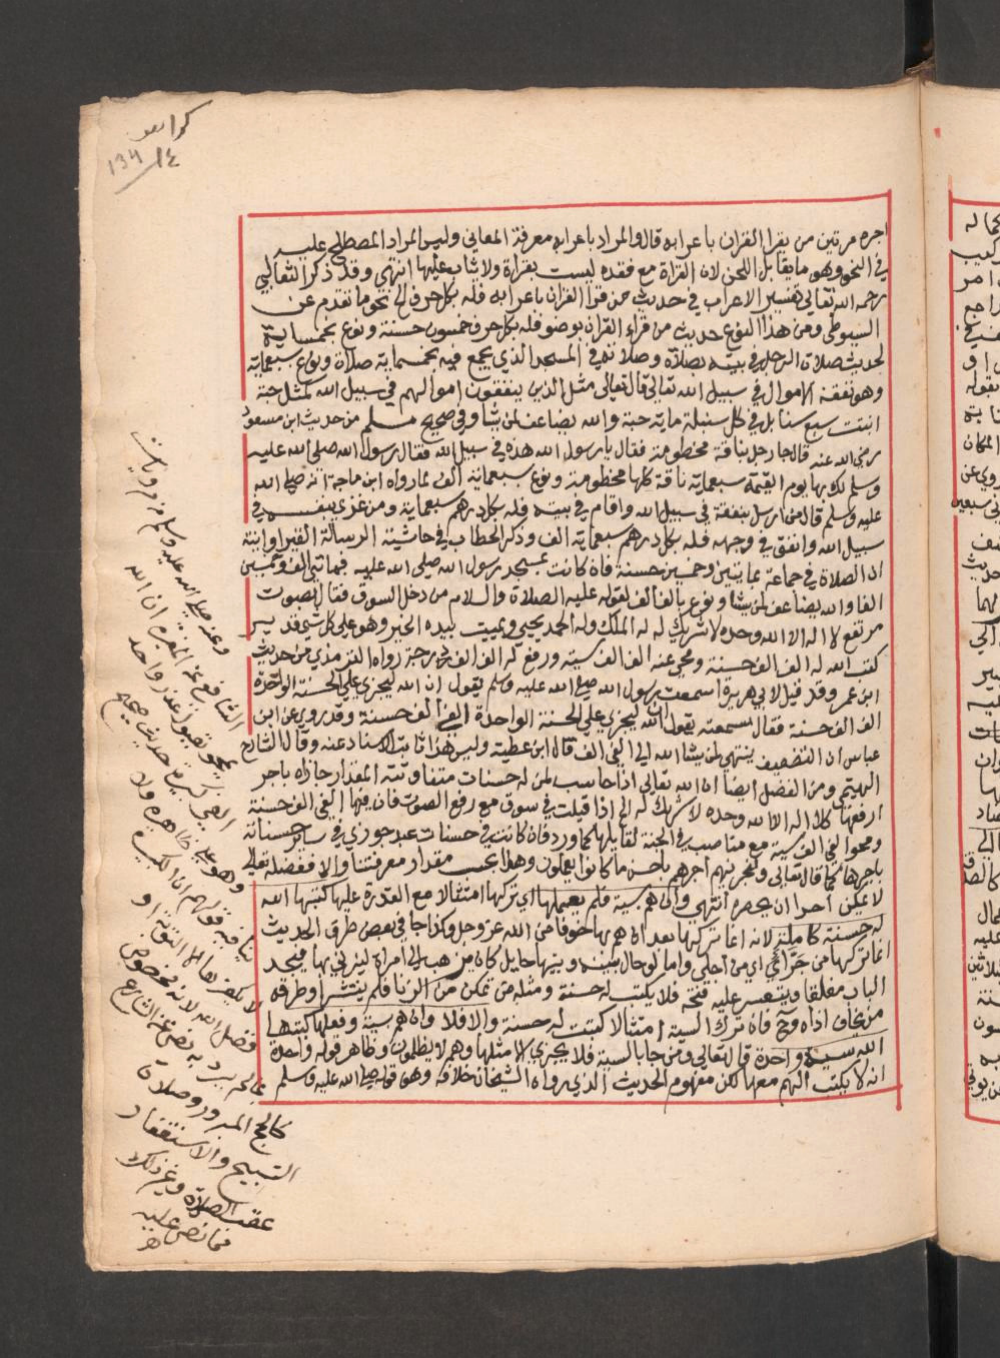 134
١٤
اجره مرتين من يقرا القران باعرابه قال والمراد باعرابه معرفة المعاني وليس المراد المصطلح عليه
في النحو وهو ما يقابل اللحن لان القراة مع فقده ليست بقراة ولا ثاب عليها انتهي وقد ذكر الثعالبي
رحمه الله تعالي تفسير الاعراب في حديث من قرا القران باعرابه فله بكل حرف الخ نحو ما تقدم عن
السيوطي ومن هذا النوع حديث من قراء القران بوضو فله بكل حرف خمسون حسنة ونوع بخمسماية
لحديث صلاة الرجل في بيته بصلاة وصلاته في المسجد الذي يجمع فيه بخمسماية صلاة ونوع بسبعماية
وهو نفقة الاموال في سبيل الله تعالي قال تعالي مثل الذين ينفقون اموالهم في سبيل الله كمثل حبة
انبتت سبع سنابل في كل سنبلة ماية حبة والله يضاعف لمن يشا وفي صحيح مسلم من حديث ابن مسعود
رضي الله عنه قال جا رجل بناقة مخطومة فقال يا رسول الله هذه في سبيل الله فقال رسول الله صلي الله عليه
وسلم لك بها يوم القيمة سبعماية ناقة كلها مخطومة ونوع سبعماية الف لما رواه ابن ماجة انه صلي الله
عليه وسلم قال من ارسل بنفقة في سبيل الله واقام في بيته فله بكل درهم سبعماية ومن غزي بنفسه في
سبيل الله وانفق في وجهه فله بكل درهم سبعماية الف وذكر الحطاب في حاشيته الرسالة القيروانية
ان الصلاة في جماعة بمايتين وخمسين حسنة فان كانت بمسجد رسول الله صلي الله عليه فبمائتي الف وخمسين
الفا والله يضاعف لمن يشا ونوع بالف الف لقوله عليه الصلاة والسلام من دخل السوق فقال بصوت
مرتفع لا اله الا الله وحده لا شريك له له الملك وله الحمد يحيي ويميت بيده الخير وهو علي كل شي قدير
كتب الله له الف الف حسنة ومحي عنه الف الف سيئة ورفع له الف الف درجة رواه الترمذي من حديث
ابن عمر وقد قيل لابي هريرة اسمعت رسول الله صلي الله عليه وسلم يقول ان الله ليجزي علي الحسنة الواحدة
الف الف حسنة فقال سمعته يقول ان الله ليجزي علي الحسنة الواحدة الفي الف حسنة وقد روي عن ابن
عباس ان التضعيف ينتهي لمن يشا الله الي الفي الف قال ابن عطية وليس هذا ثابت الاسناد عنه وقال الشارح
الهيتمي ومن الفضل ايضا ان الله تعالي اذا حاسب لمن له حسنات متفاوتة المقدار جازاه باجر
ارفعها كلا اله الا الله وحده لا شريك له الخ اذا قيلت في سوق مع رفع الصوت فان فيها الفي الف حسنة
ومحو الفي الف سيئة مع مناصب في الجنة لقايلها كما ورد فان كانت في حسنات عبد جوزي في ساير حسناته
باجرها كما قال تعالي ولنجزينهم اجرهم باحسن ما كانوا يعملون وهذا بحسب مقدار معرفتنا والا ففضله تعالي
لا يمكن احدا ان يحصره انتهي وان هم بسيئة فلم يعملها اي تركها امتثالا مع القدرة عليها كتبها الله
له حسنة كاملة لانه انما تركها بعد ان هم بها خوفا من الله عز وجل وكذا جا في بعض طرق الحديث
انما تركها من جراي اي من اجلي واما لو حال بينه وبينها حايل كان من ذهب الي امراة ليزني بها فيجد
الباب مغلقا ويتعسر عليه فتحه فلا يكتب له حسنة ومثله من تمكن من الزنا فلم ينتشر او طرقه
من يخاف اذاه وح فان ترك السيئة امتثالا كتبت له حسنة والا فلا وان هم بسيئة وفعلها كتبها
الله سيئة واحدة قال تعالي ومن جا بالسيئة فلا يجزي الا مثلها وهم لا يظلمون وظاهر قوله واحدة
انه لا يكتب الهم معها لكن مفهوم الحديث الذي رواه الشيخان خلافه وهو قوله صلي الله عليه وسلم
كالحج المبرور وصلاة
التسبيح والاستغفار
عقب الصلاة وغير ذلك
مما نص عليه